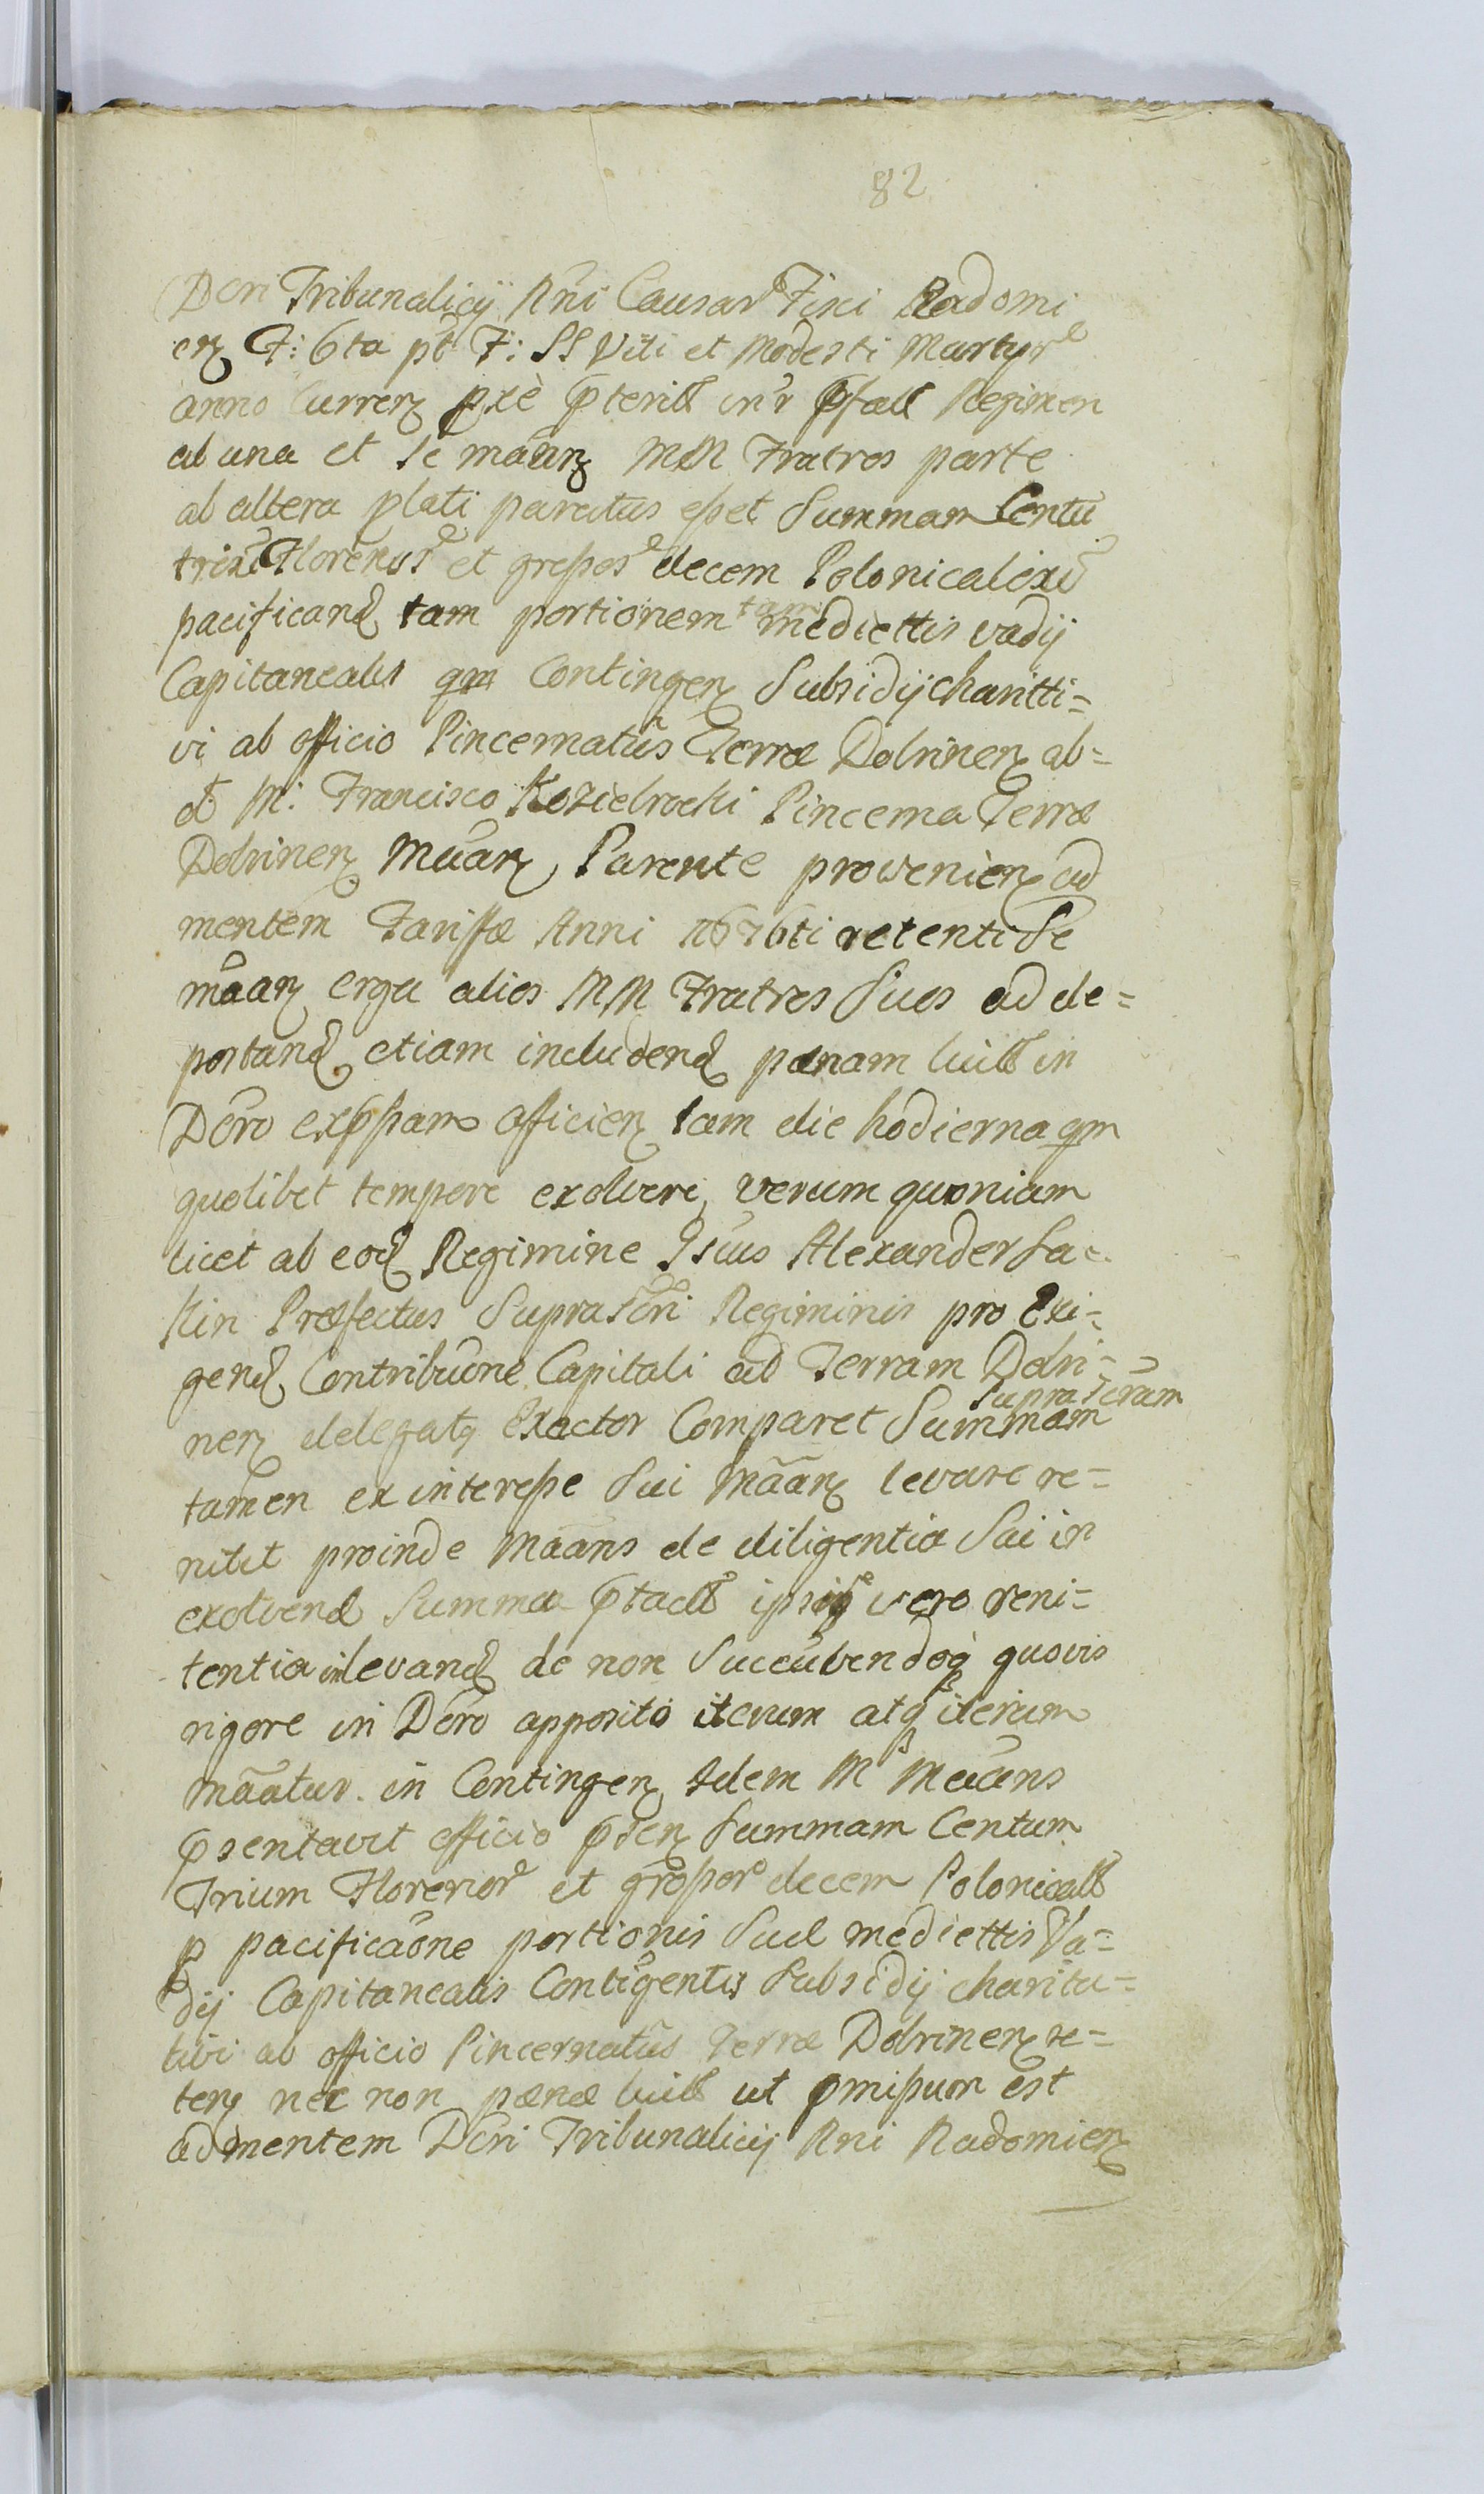 82
Dcri Tribunalicij Rni Causar Fisci Radomi
en F: 6ta pt F: SS Viti et Modesti Martyr
anno Curren pxè pterill intr pfall Regimen
ab una et se mãan MM Fratres parte
ab altera plati paratus esset Summam Centu
trium Florenor et grossor decem Polonicaliũ
pacificand tam portionem tam mediettis vadij
Capitanealis qm Contingen Subsidij charitti=
vi ab officio Pincernatũs Terræ Dobrinen ab=
M: Francisco Koziebrocki Pincerna Terræ
Dobrinen Mãan Parente prowenien ad
mentem Tariffæ Anni 1676ti retenti Se
mãan erga alios MM Fratres Suos ad de=
portand etiam includend pænam luill in
Dcro expssam officien tam die hodierna qm
quolibet tempore exolvere, verum quoniam
licet ab eod Regimine Gsus Alexander Sa
kin Præfectus Suprascri Regiminis pro Exi=
gend Contribuone Capitali ad Terram Dobri=
nen delegatq Exactor Comparet Suprascram Summam
tamen ex interesse Sui Mãan levare re=
nitit proinde Mãans de diligentia Sui in
exolvend Summa ptacll ipsiq vero reni=
tentia in levand de non Succũbendoq quovis
rigore in Dcro apposito iterum atq iterum
Mãatur. in Contingen Idem M Mãans
psentavit officio psen Summam Centum
Trium Florenor et grossor decem Polonicall
p pacificaõne portionis Suæ mediettis Va=
dij Capitanealis Contĩgentis Subsidij charita=
tivi ab officio Pincernatũs Terræ Dobrinen re=
ten nec non pænæ luill ut pmissum est
ad mentem Dcri Tribunalicij Rni Radomien